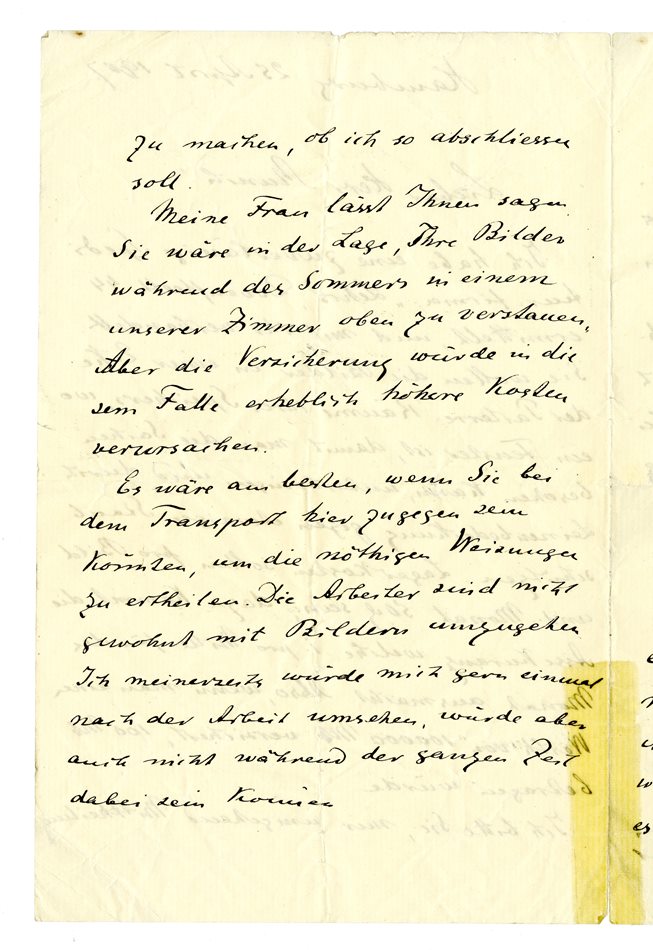 zu machen, ob ich so abschliessen
soll.
Meine Frau lässt Ihnen sagen
Sie wäre in der Lage, Ihre Bilder
während des Sommers in einem
unserer Zimmer oben zu verstauen.
Aber die Versicherung würde in die
sem Falle erheblich höhere Kosten
verursachen.
Es wäre am besten, wenn Sie bei
dem Transport hier zugegen sein
könnten, um die nöthigen Weisungen
zu ertheilen. Die Arbeiter sind nicht
gewohnt mit Bildern umzugehen
Ich meinerseits würde mich gern einmal
nach der Arbeit umsehen, würde aber
auch nicht während der ganzen Zeit
dabei sein können